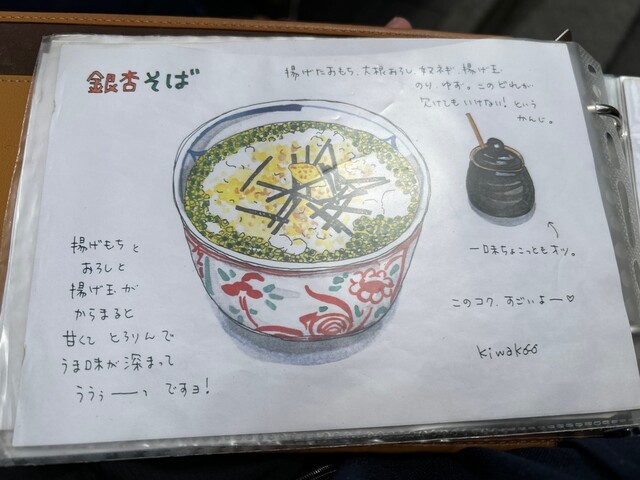 銀杏そば
揚げたおもち、大根おろし、奴ネギ、揚げ玉
のり、ゆず。このどれが
欠けてもいけない!という
かんじ。
揚げもちと
おろしと
揚げ玉が
からまると
甘くて とろりんで
うま味が深まって
ううぅーーっ ですヨ!
一味ちょこっともオツ。
このコク、すごいよー♡
kiwakoo